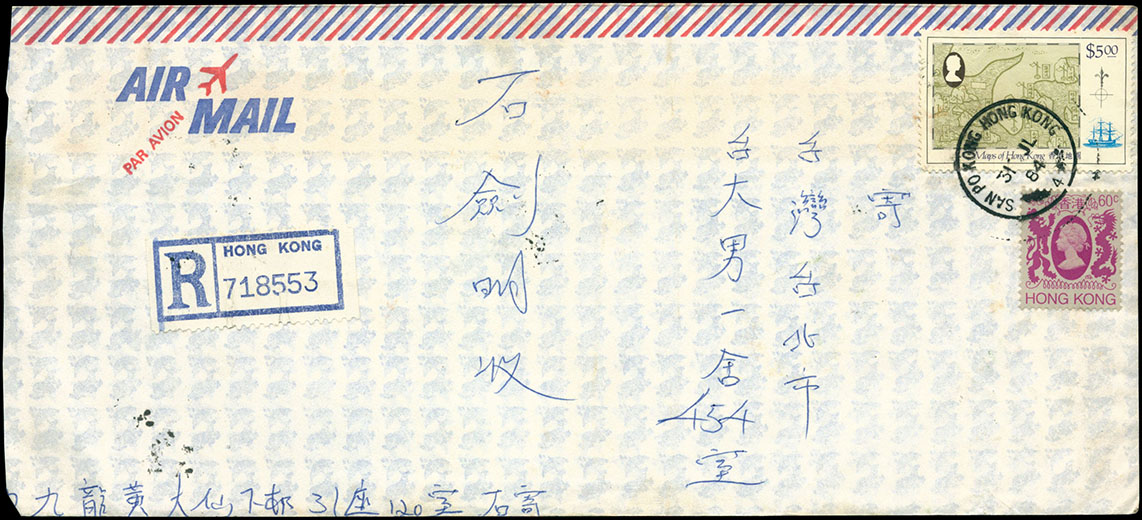 AIR MAIL
PAR AVION
R
HONG KONG
718553
$5.00
Maps of Hong Kong 香港地圖
SAN PO KONG HONG KONG
31 JL
84
4
香港 60c
HONG KONG
寄
台灣台北市
台大男一舍454室
石劍明收
九龍黃大仙下邨31座120室石寄